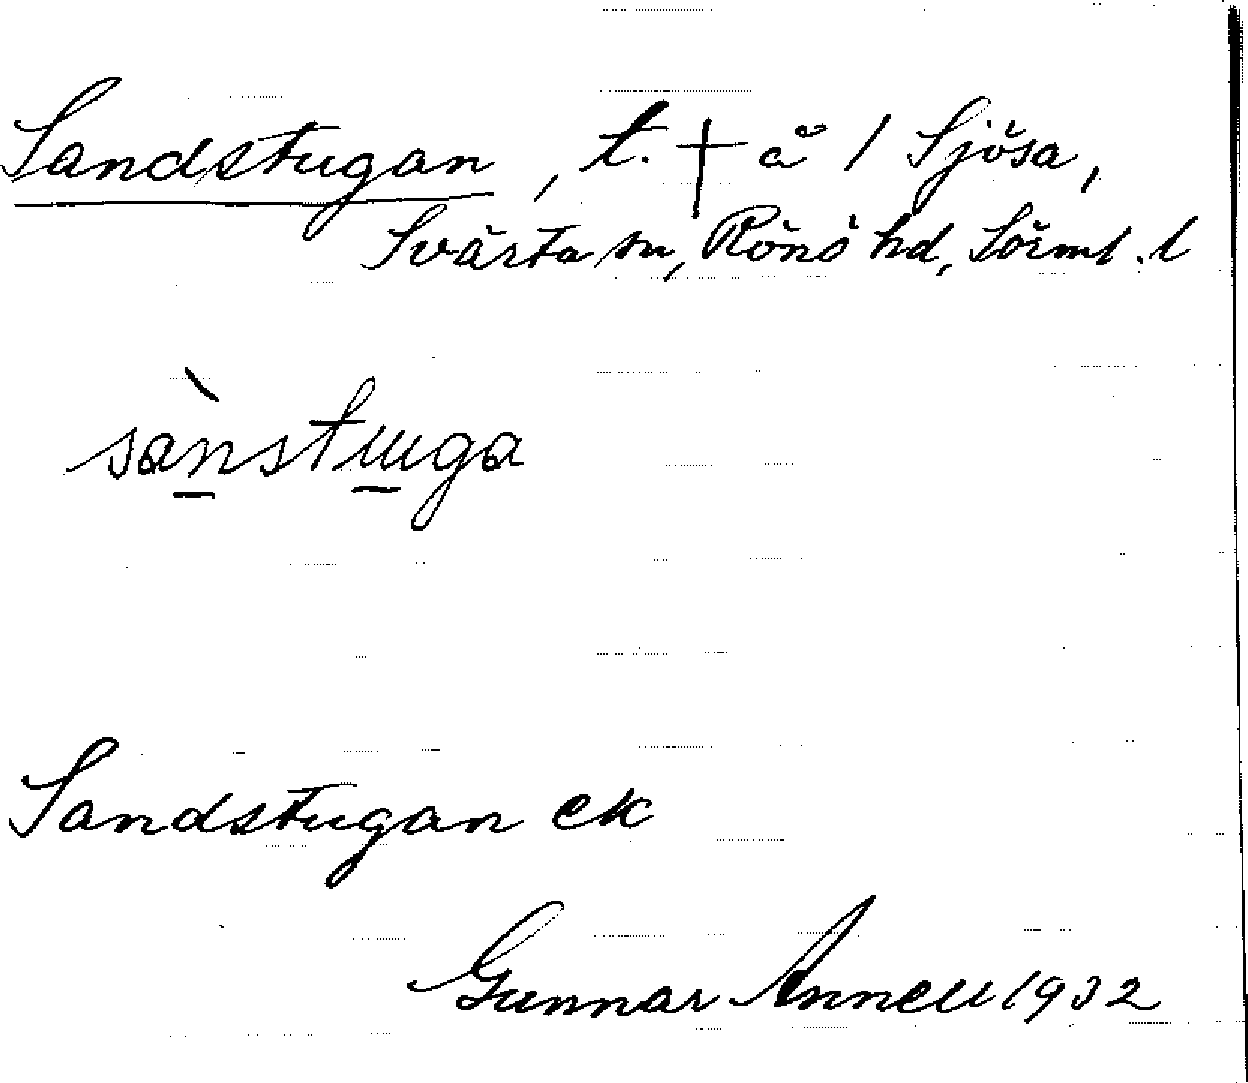 Sandstugan, t. † å 1 Sjösa,
Svärta sn, Rönö hd, Sörml. l
sànstuga
Sandstugan ek
Gunnar Annell 1932